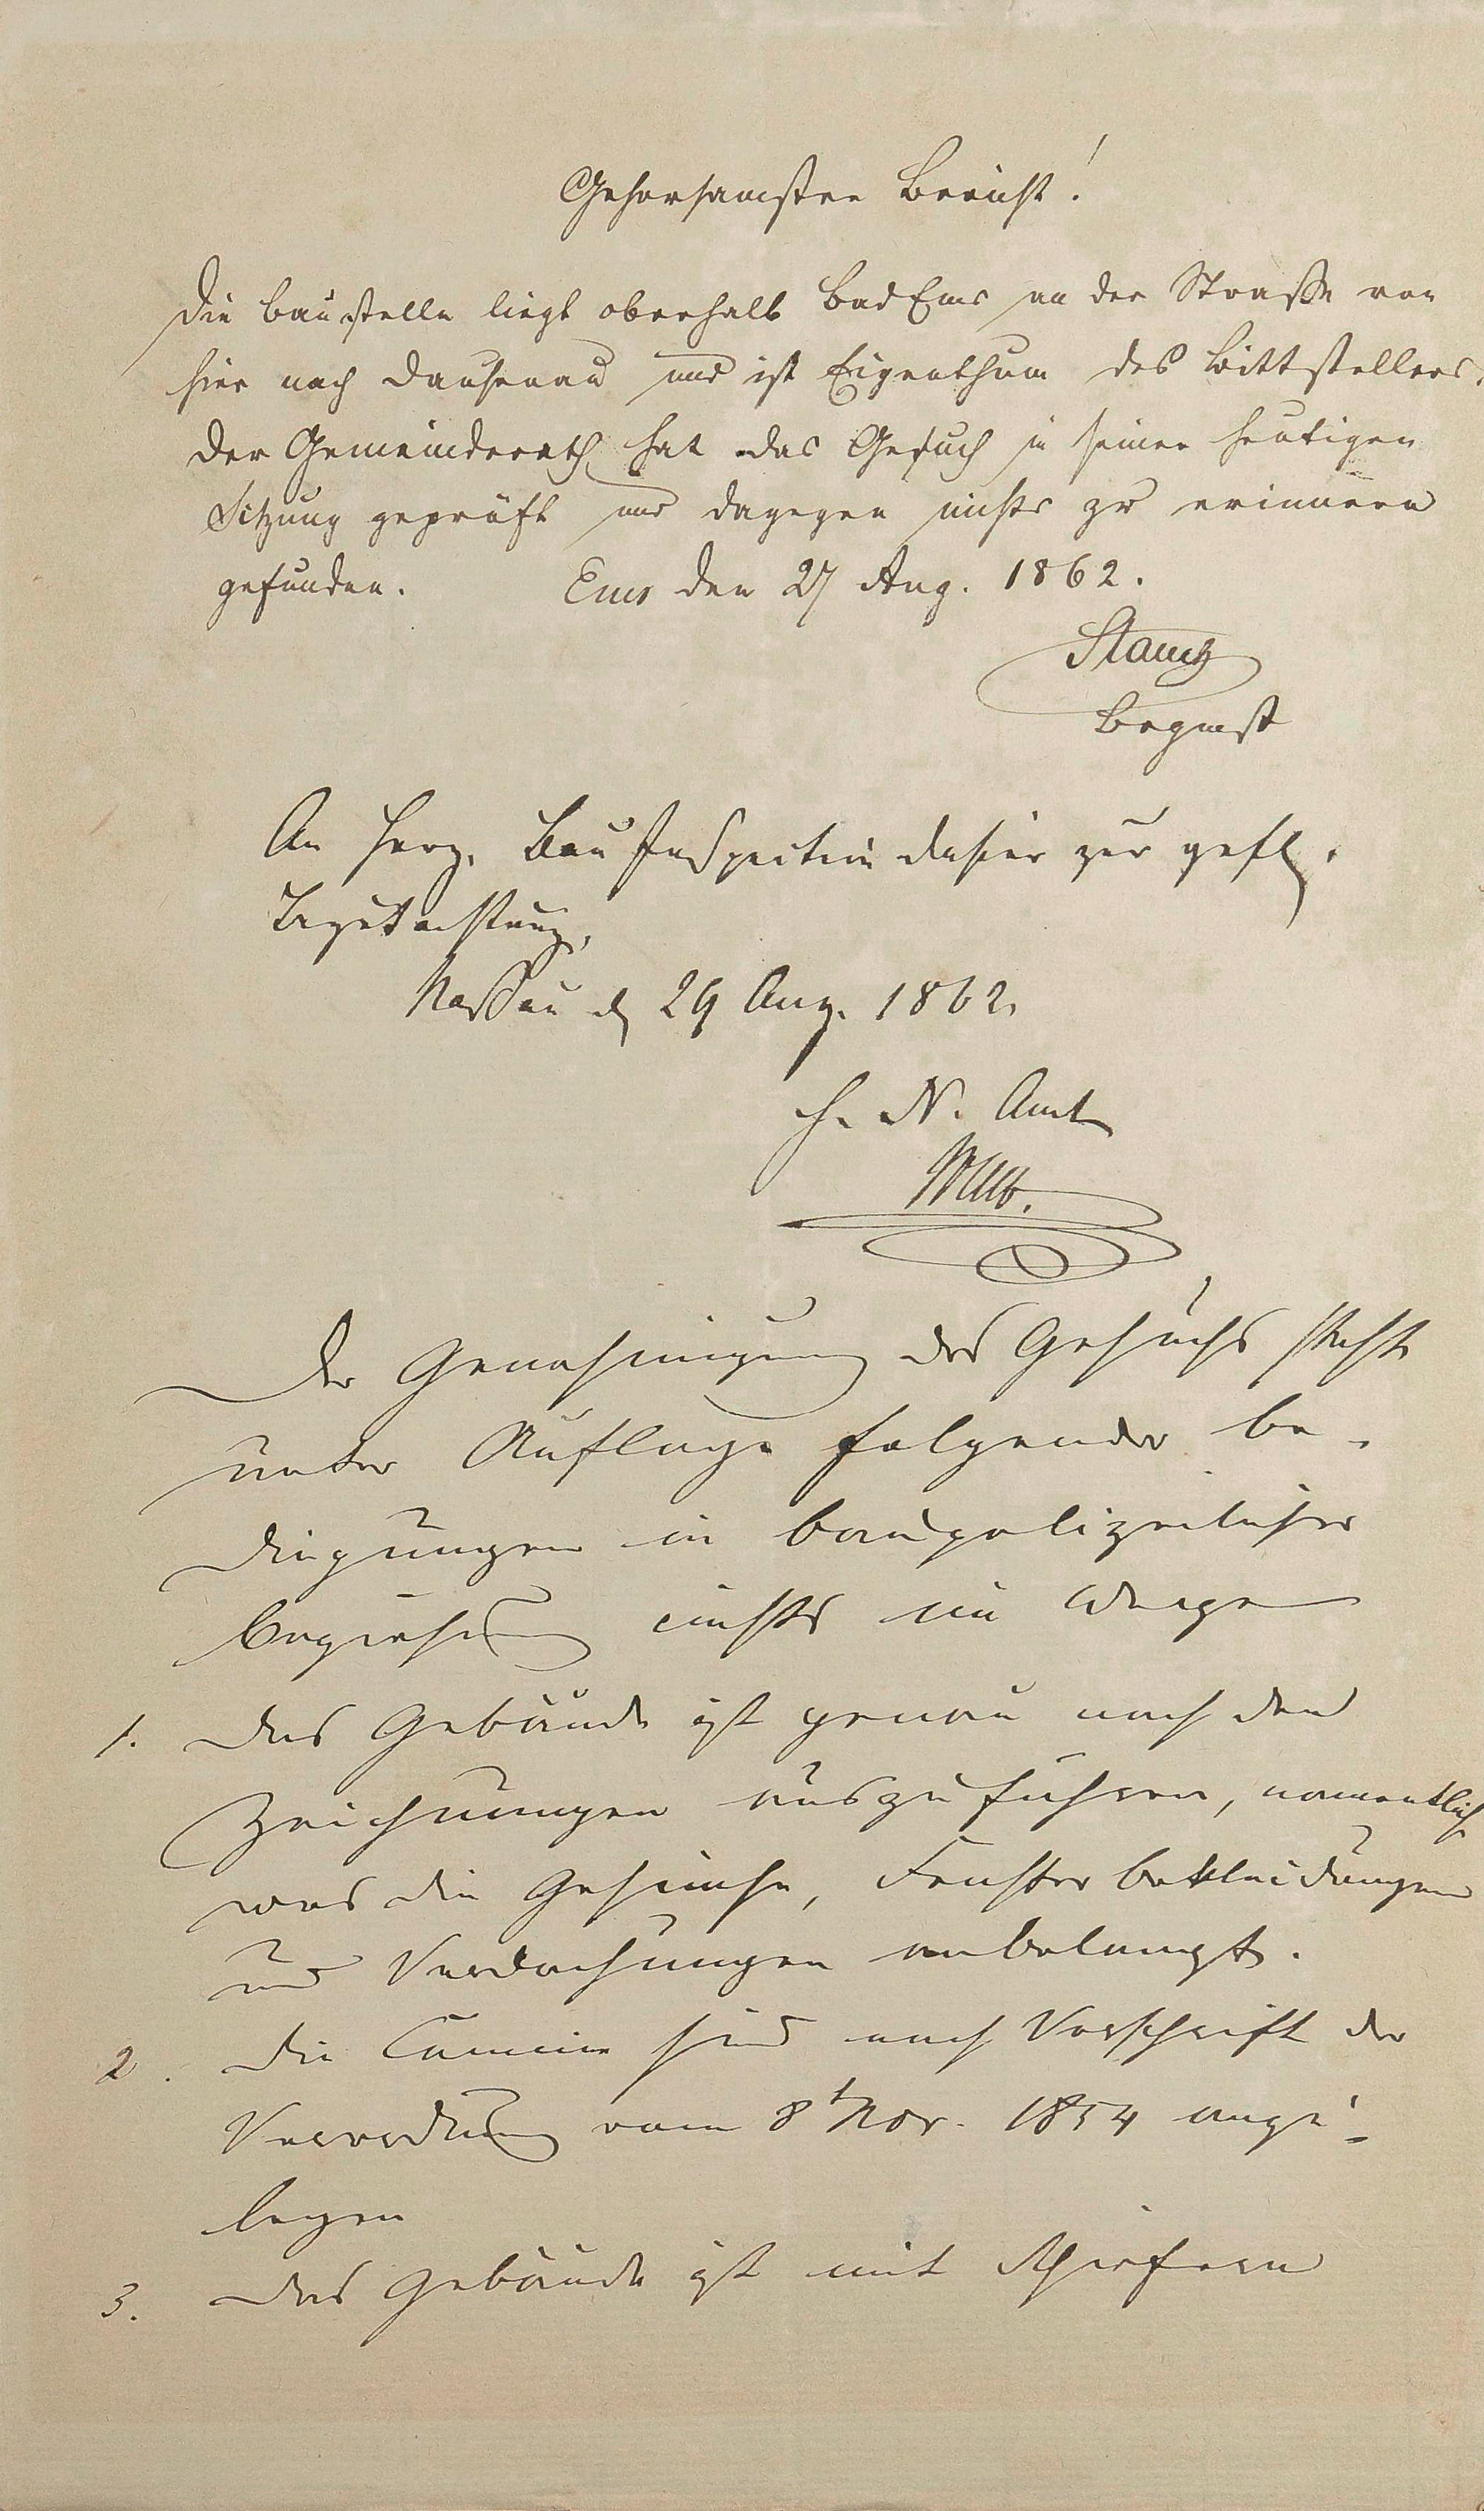 Gehorsamster Bericht!
Die Baustelle liegt oberhalb Bad Ems an der Straße von
hier nach Dausenau und ist Eigenthum des Bittstellers.
Der Gemeinderath hat das Gesuch in seiner heutigen
Sitzung geprüft und dagegen nichts zu erinnern
gefunden. Ems den 27 Aug. 1862.
An Herz. Bau Inspection dahier zur gefl.
Begutachtung,
Nassau d 29 Aug. 1862.
H. N. Amt
Der Genehmigung des Gesuchs steht
unter Auflage folgender Be-
dingungen in baupolizeilicher
Beziehung nichts im Wege
1. Das Gebäude ist genau nach den
Zeichnungen auszuführen, namentlich
was die Gesimse, Fensterbekleidungen
und Verdachungen anbelangt.
2. Die Camine sind nach Vorschrift der
Verordnung vom 8t Nov. 1854 anzu-
legen
3. Das Gebäude ist mit Schiefern